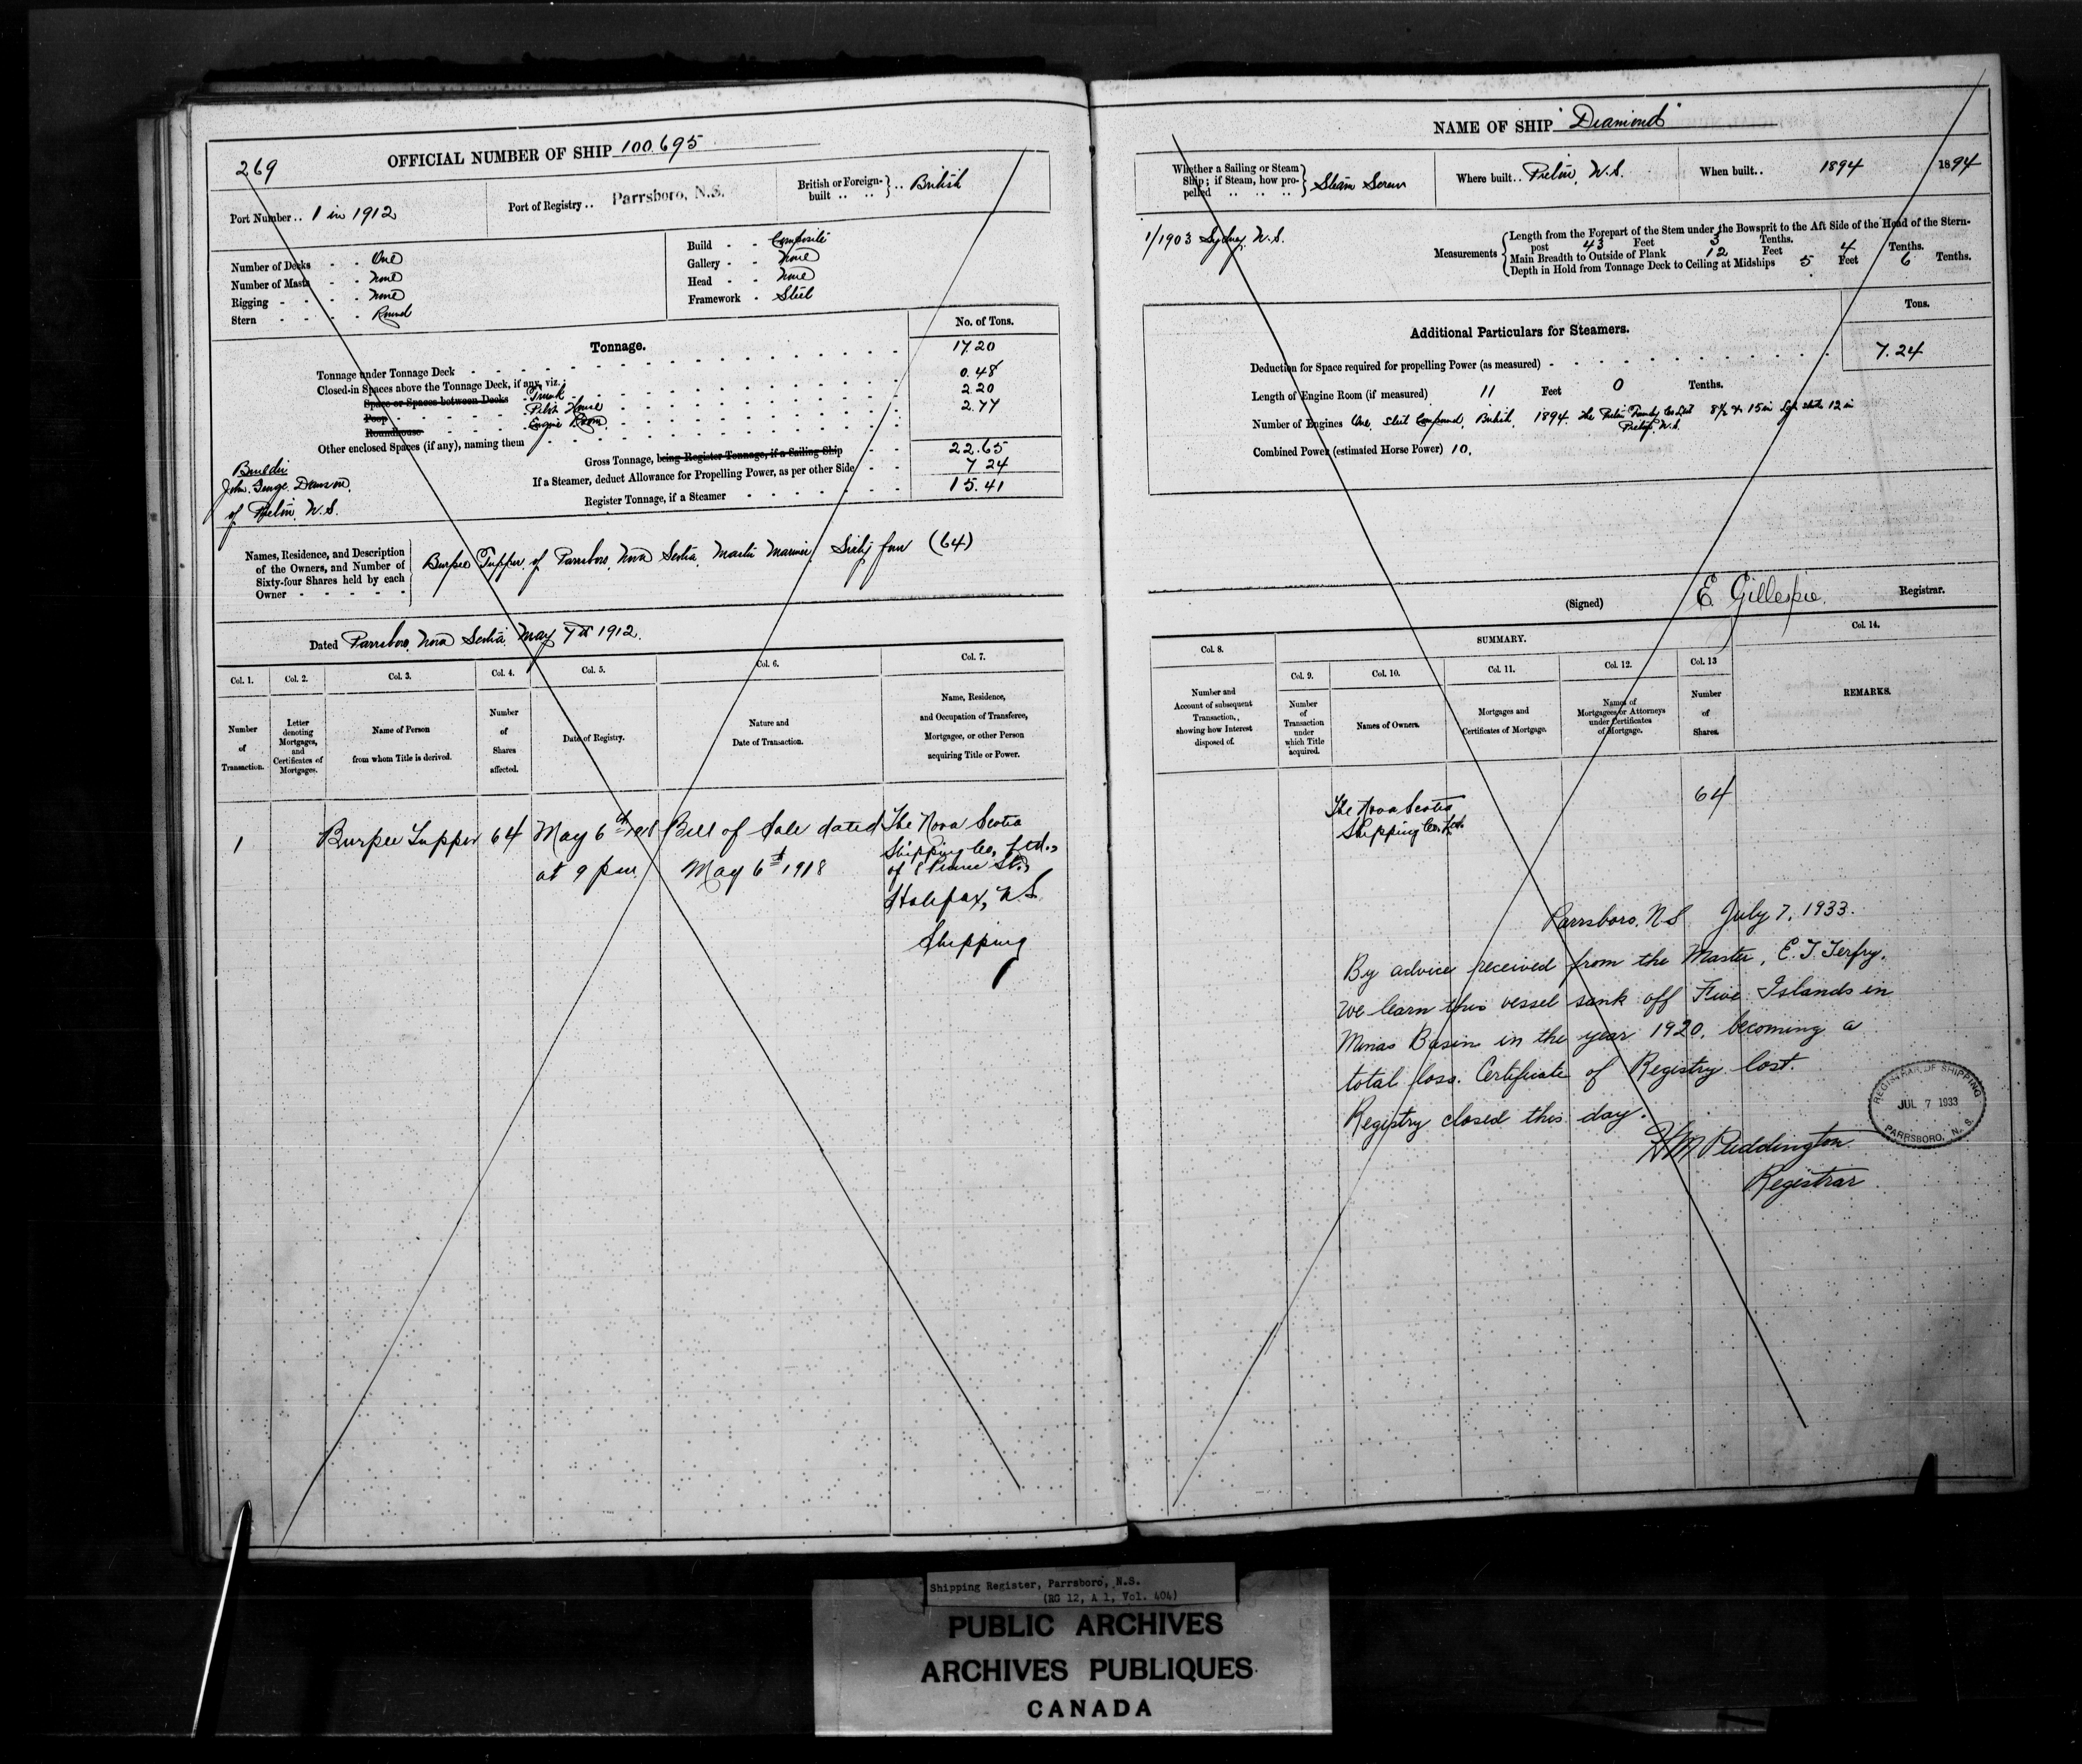 269
OFFICIAL NUMBER OF SHIP 100.695
Port Number .. 1 in 1912
Port of Registry .. Parrsboro, N.S.
British or Foreign-built .. .. } .. British
Number of Decks - - One
Number of Masts - - None
Rigging - - - - None
Stern - - - - Round
Build - - Composite
Gallery - - None
Head - - None
Framework - Steel
Tonnage.
No. of Tons.
Tonnage under Tonnage Deck 17.20
Closed-in Spaces above the Tonnage Deck, if any, viz.:
Space or Spaces between Decks Trunk 0.48
Poop Pilot House 2.20
Roundhouse Engine Room 2.77
Other enclosed Spaces (if any), naming them
Gross Tonnage, being Register Tonnage, if a Sailing Ship 22.65
If a Steamer, deduct Allowance for Propelling Power, as per other Side 7 24
Register Tonnage, if a Steamer 15.41
Builder
John George
of Pictou, N.S.
Names, Residence, and Description
of the Owners, and Number of
Sixty-four Shares held by each
Owner - - - - -
Burpee Tupper of Parrsboro, Nova Scotia, Master Mariner, Sixty four (64)
Dated Parrsboro, Nova Scotia, May 7th 1912.
Col. 1. Col. 2. Col. 3. Col. 4. Col. 5. Col. 6. Col. 7.
Number of Transaction.
Letter denoting Mortgages, and Certificates of Mortgages.
Name of Person from whom Title is derived.
Number of Shares affected.
Date of Registry.
Nature and Date of Transaction.
Name, Residence, and Occupation of Transferee, Mortgagee, or other Person acquiring Title or Power.
1 Burpee Tupper 64 May 6th 1918 Bill of Sale dated The Nova Scotia
at 9 pm May 6th 1918 Shipping Co., Ltd.,
of
Halifax, N.S.
Shipping
NAME OF SHIP "Diamond"
Whether a Sailing or Steam
Ship; if Steam, how pro-
pelled .. .. .. } Steam Screw
Where built .. Pictou, N.S.
When built .. 1894 1894
1/1903 Sydney, N.S.
Measurements
Length from the Forepart of the Stem under the Bowsprit to the Aft Side of the Head of the Stern-
post 43 Feet 3 Tenths.
Main Breadth to Outside of Plank 12 Feet 4 Tenths.
Depth in Hold from Tonnage Deck to Ceiling at Midships 5 Feet 6 Tenths.
Tons.
Additional Particulars for Steamers.
Deduction for Space required for propelling Power (as measured) - 7.24
Length of Engine Room (if measured) 11 Feet 0 Tenths.
Number of Engines One, Steel Compound, British, 1894. The Pictou Foundry Co Ltd 8½ & 15 in 12 in
Pictou, N.S.
Combined Power (estimated Horse Power) 10.
(Signed) E. Gillespie. Registrar.
SUMMARY.
Col. 8. Col. 9. Col. 10. Col. 11. Col. 12. Col. 13 Col. 14.
Number and Account of subsequent Transaction, showing how Interest disposed of.
Number of Transaction under which Title acquired.
Names of Owners.
Mortgages and Certificates of Mortgage.
Names of Mortgagees or Attorneys under Certificates of Mortgage.
Number of Shares.
REMARKS.
The Nova Scotia 64
Shipping Co. Ltd.
Parrsboro, N.S July 7, 1933.
By advice received from the Master, E. T. Terfry,
we learn this vessel sank off Five Islands in
Minas Basin in the year 1920, becoming a
total loss. Certificate of Registry lost.
Registry closed this day.
H M Puddington
Registrar
REGISTRAR OF SHIPPING
JUL 7 1933
PARRSBORO, N. S.
Shipping Register, Parrsboro, N.S.
(RG 12, A 1, Vol. 404)
PUBLIC ARCHIVES
ARCHIVES PUBLIQUES
CANADA